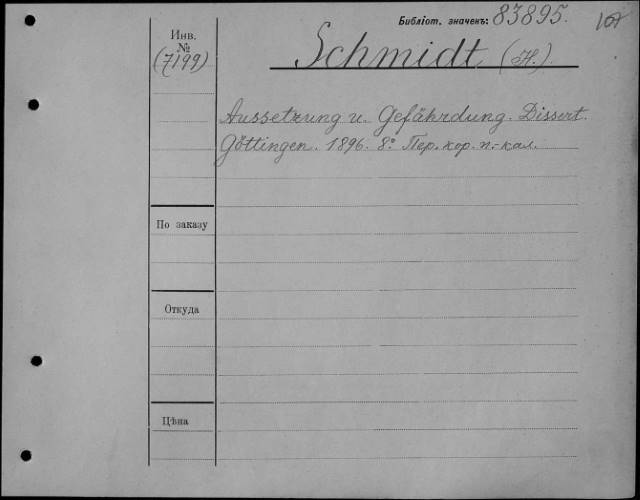 Библіот. значекъ: 83895.
107
Инв.
№
(7199)
Schmidt (H.)
Aussetzung u. Gefährdung. Dissert.
Göttingen. 1896. 8º Пер. кор. п.-кал.
По заказу
Откуда
Цѣна